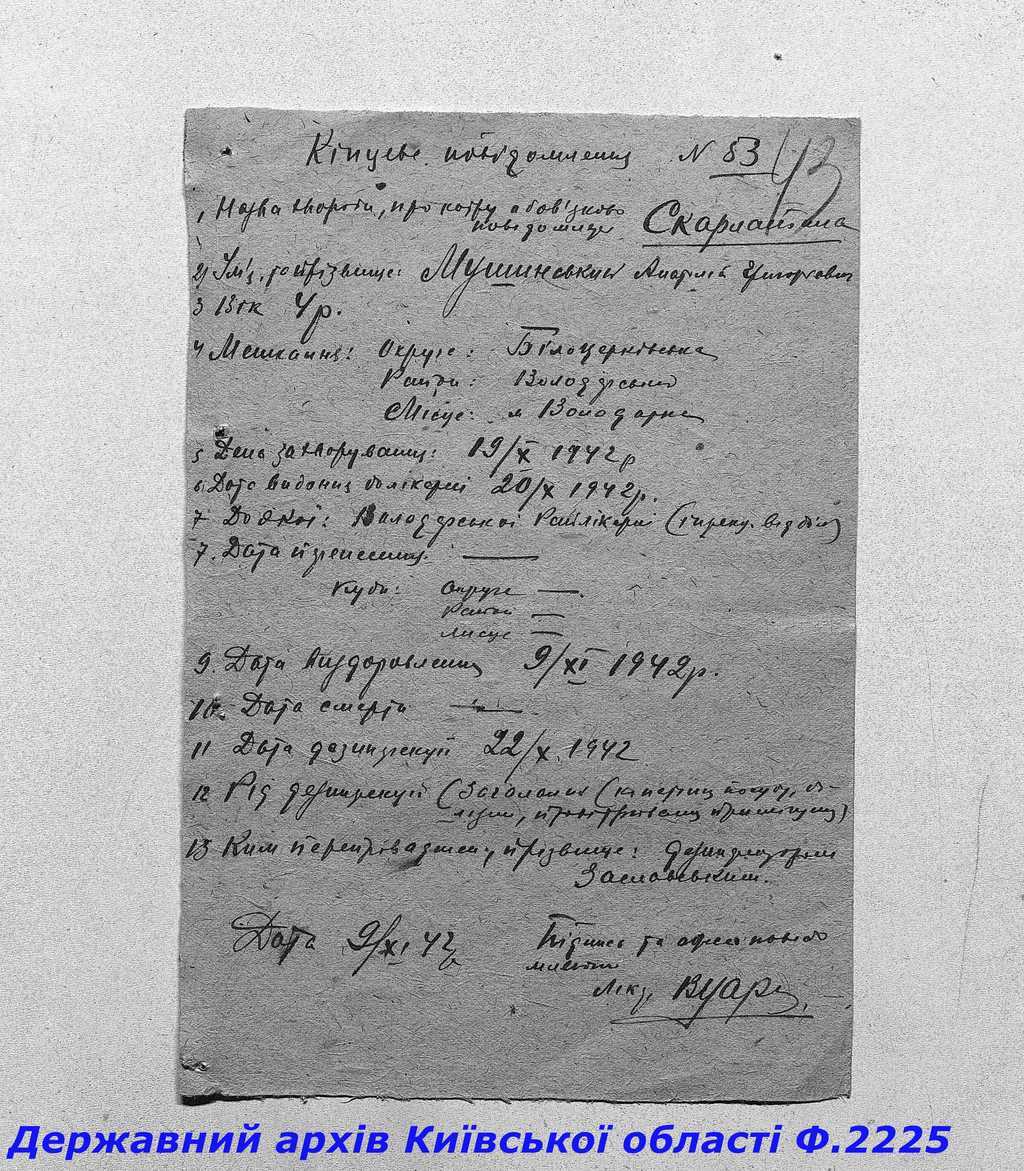 Кінцеве повідомлення N 83 43
1, Назва хвороби, про котру обов'язково
повідомище Скарлатина
2) Ім'я, та прізвище: Мушинський Анатолій Григорович
3 Вік 4 р.
4 Мешкання: Округа: Білоцерківська
Район: Володарський
Місце: м Володарка
5 День захворування: 19/X 1942 р
6. Дата видання до лікарні 20/X 1942 р.
7 До якої: Володарської Райлікарні
7. Дата —
Куди: Округа —.
Район —
Місце —
9. Дата видоровлення 9/XI 1942 р.
10. Дата смерти —
11 Дата дезинфекції 22/X. 1942
12 Рід дезинфекції
13 Ким переправаджен, прізвище: дезинфектором
Заславським.
Дата 9/XI 42 Підпис та адреса повідо
Лік,
Державний архів Київської області Ф.2225